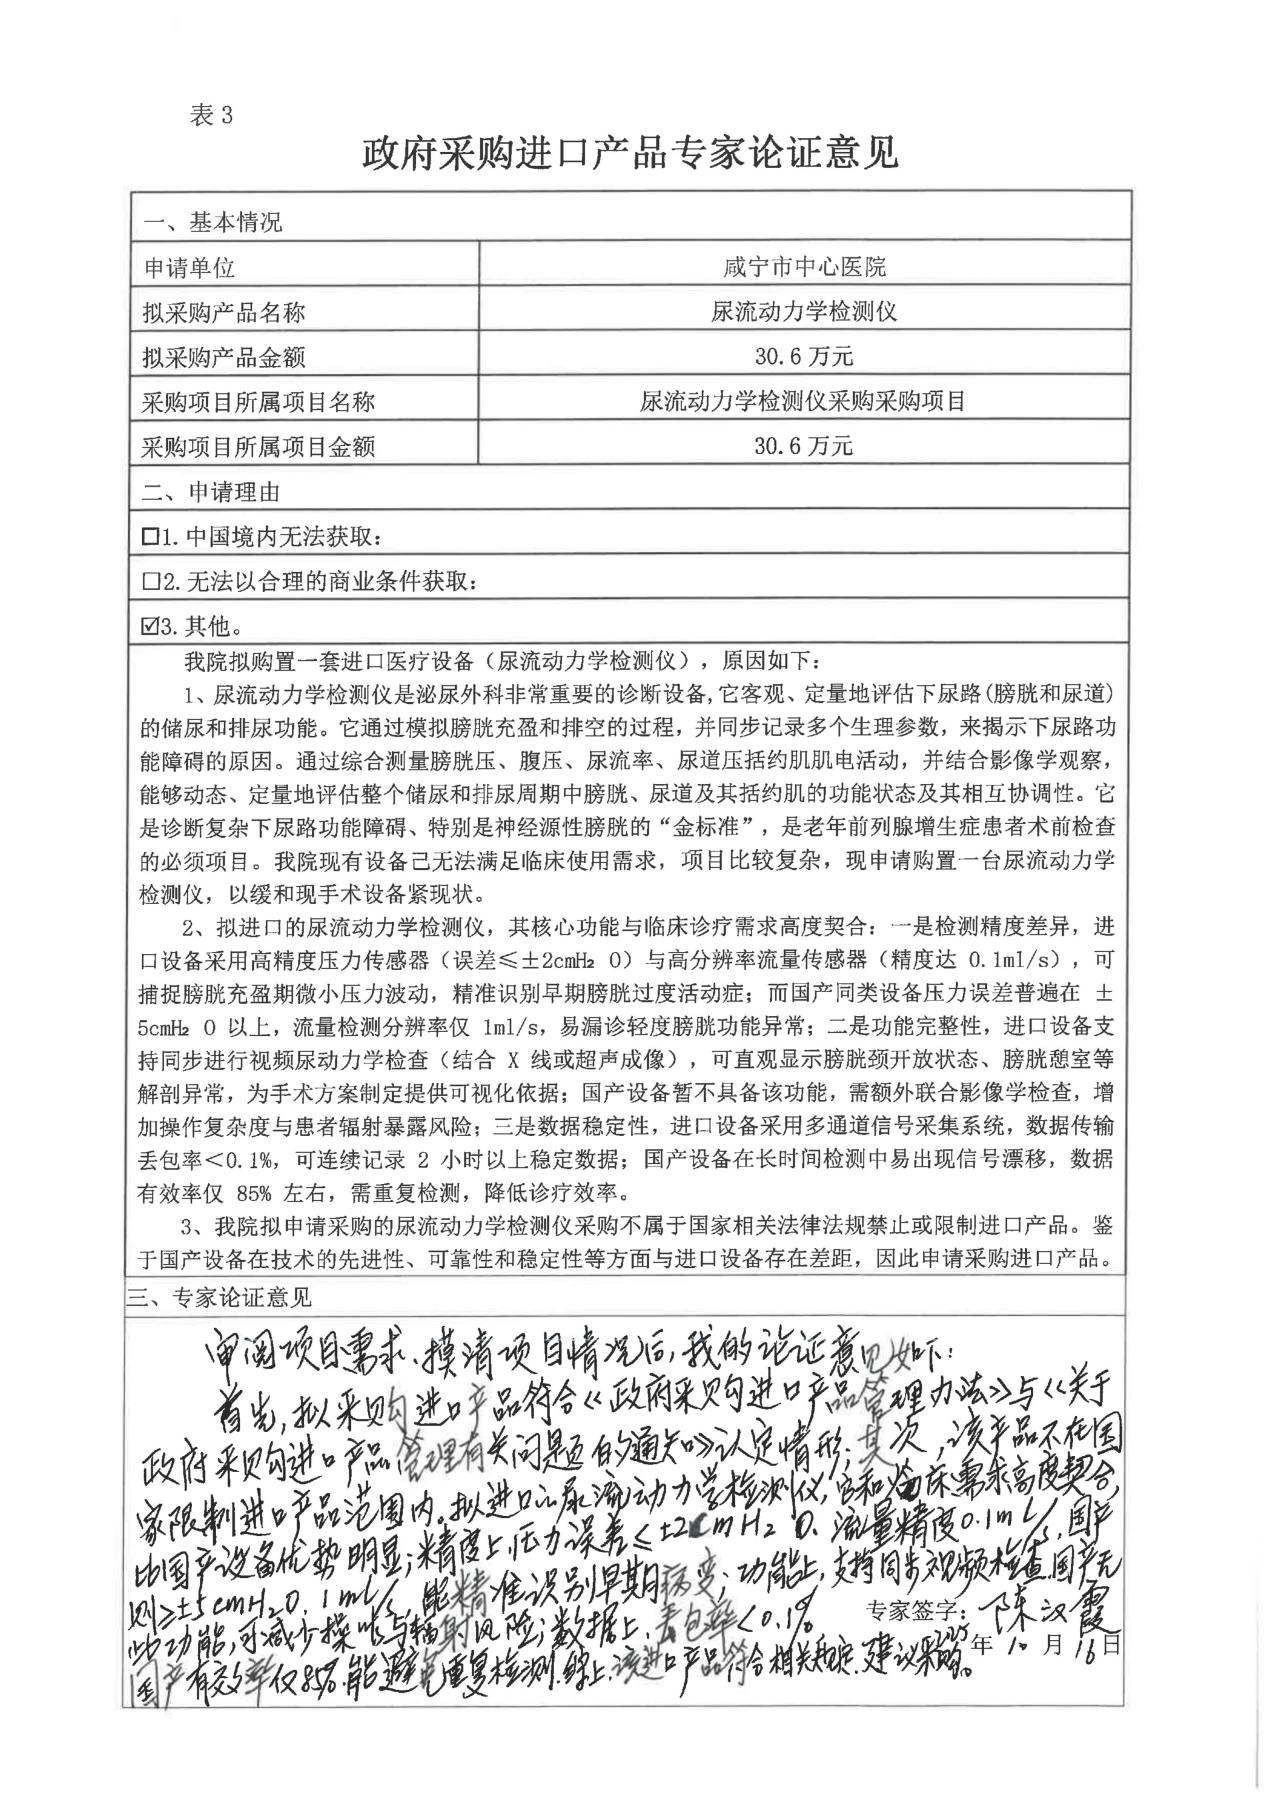 表3
政府采购进口产品专家论证意见
一、基本情况
申请单位 咸宁市中心医院
拟采购产品名称 尿流动力学检测仪
拟采购产品金额 30.6 万元
采购项目所属项目名称 尿流动力学检测仪采购采购项目
采购项目所属项目金额 30.6 万元
二、申请理由
☐1.中国境内无法获取:
☐2.无法以合理的商业条件获取:
☑3.其他。
我院拟购置一套进口医疗设备（尿流动力学检测仪），原因如下：
1、尿流动力学检测仪是泌尿外科非常重要的诊断设备,它客观、定量地评估下尿路(膀胱和尿道)
的储尿和排尿功能。它通过模拟膀胱充盈和排空的过程，并同步记录多个生理参数，来揭示下尿路功
能障碍的原因。通过综合测量膀胱压、腹压、尿流率、尿道压括约肌肌电活动，并结合影像学观察，
能够动态、定量地评估整个储尿和排尿周期中膀胱、尿道及其括约肌的功能状态及其相互协调性。它
是诊断复杂下尿路功能障碍、特别是神经源性膀胱的“金标准”，是老年前列腺增生症患者术前检查
的必须项目。我院现有设备己无法满足临床使用需求，项目比较复杂，现申请购置一台尿流动力学
检测仪，以缓和现手术设备紧现状。
2、拟进口的尿流动力学检测仪，其核心功能与临床诊疗需求高度契合：一是检测精度差异，进
口设备采用高精度压力传感器（误差≤±2cmH₂ O）与高分辨率流量传感器（精度达 0.1ml/s），可
捕捉膀胱充盈期微小压力波动，精准识别早期膀胱过度活动症；而国产同类设备压力误差普遍在 ±
5cmH₂ O 以上，流量检测分辨率仅 1ml/s，易漏诊轻度膀胱功能异常；二是功能完整性，进口设备支
持同步进行视频尿动力学检查（结合 X 线或超声成像），可直观显示膀胱颈开放状态、膀胱憩室等
解剖异常，为手术方案制定提供可视化依据；国产设备暂不具备该功能，需额外联合影像学检查，增
加操作复杂度与患者辐射暴露风险；三是数据稳定性，进口设备采用多通道信号采集系统，数据传输
丢包率＜0.1%，可连续记录 2 小时以上稳定数据；国产设备在长时间检测中易出现信号漂移，数据
有效率仅 85% 左右，需重复检测，降低诊疗效率。
3、我院拟申请采购的尿流动力学检测仪采购不属于国家相关法律法规禁止或限制进口产品。鉴
于国产设备在技术的先进性、可靠性和稳定性等方面与进口设备存在差距，因此申请采购进口产品。
三、专家论证意见
审阅项目需求、摸清项目情况后,我的论证意见如下:
首先,拟采购进口产品符合《政府采购进口产品管理办法》与《关于
政府采购进口产品管理有关问题的通知》认定情形;其次,该产品不在国
家限制进口产品范围内。拟进口的尿流动力学检测仪,它和临床需求高度契合,
比国产设备优势明显;精度上,压力误差≤±2cmH₂O、流量精度0.1mL/s,国产
则≥±5cmH₂O、1mL/s,能精准识别早期病变;功能上,支持同步视频检查,国产无
此功能,可减少操作与辐射风险;数据上,丢包率<0.1%
专家签字：陈汉霞
国产有效率仅85%,能避免重复检测.综上,该进口产品符合相关规定,建议采购。
2025年10月16日